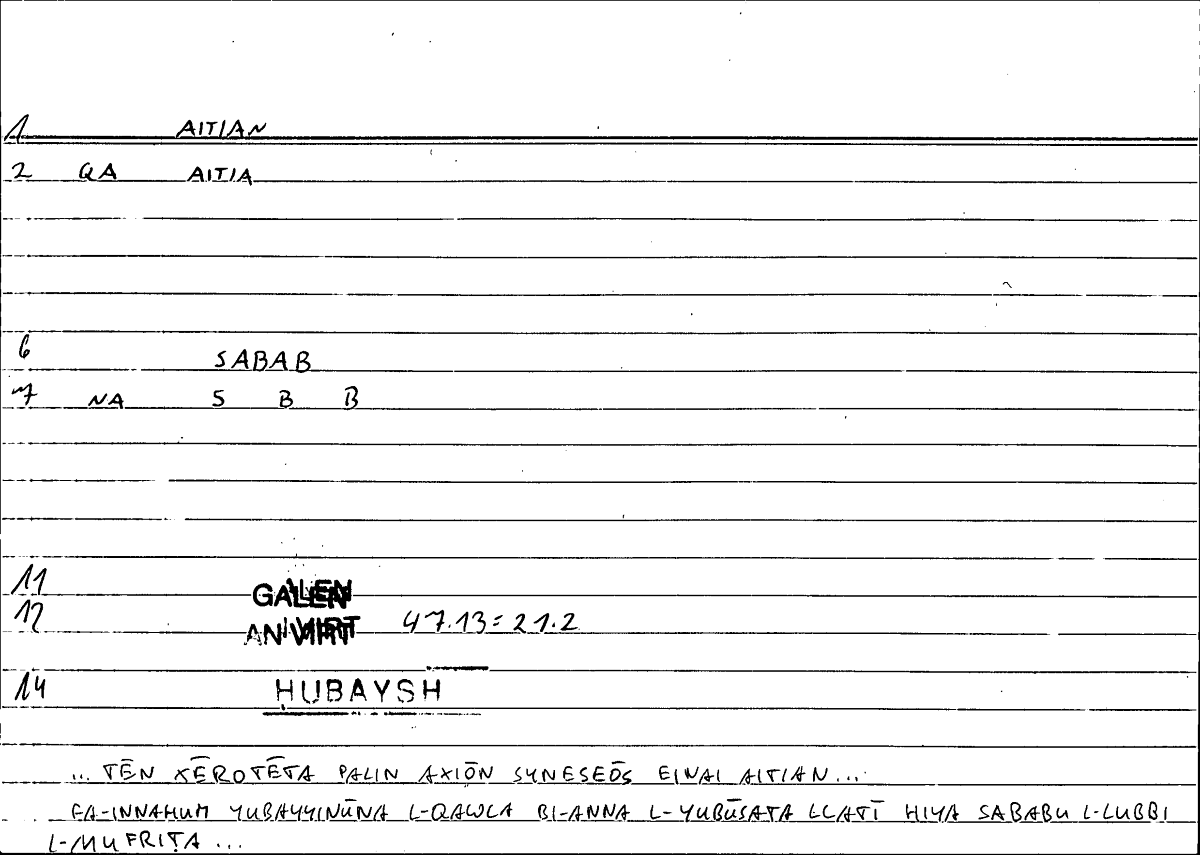 1 AITIAN
2 QA AITIA
6 SABAB
7 NA S B B
11 GALEN
12 AN VIRT 47.13=21.2
14 HUBAYSH
... TĒN XĒROTĒTA PALIN AXIŌN SYNESEŌS EINAI AITIAN...
FA-INNAHUM YUBAYYINŪNA L-QAWLA BI-ANNA L-YUBŪSATA LLATĪ HIYA SABABU L-LUBBI
L-MUFRIṬA ...